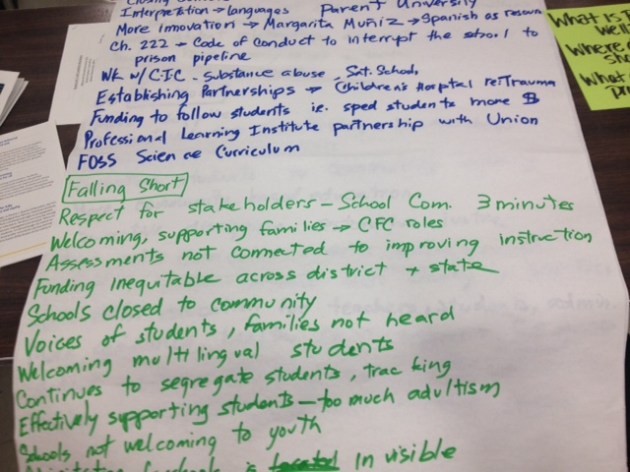 Interpretation → Languages Parent University
More Innovation → Margarita Muñiz → Spanish as resource
Ch. 222 → Code of Conduct to interrupt the school to
prison pipeline
Wk w/ CJC - Substance abuse - Sat. School,
Establishing Partnerships → Children's Hospital re: Trauma
Funding to follow students ie. sped students more $
Professional Learning Institute partnership with Union
FOSS Science Curriculum
Falling Short
Respect for stakeholders - School Com. 3 minutes
Welcoming, supporting families → CFC roles
Assessments not connected to improving instruction
Funding inequitable across district + state
Schools closed to community
Voices of students, families not heard
Welcoming multilingual students
Continues to segregate students, tracking
Effectively supporting students - too much adultism
Schools not welcoming to youth
is in visible
What is
Well
Where
Sho
What